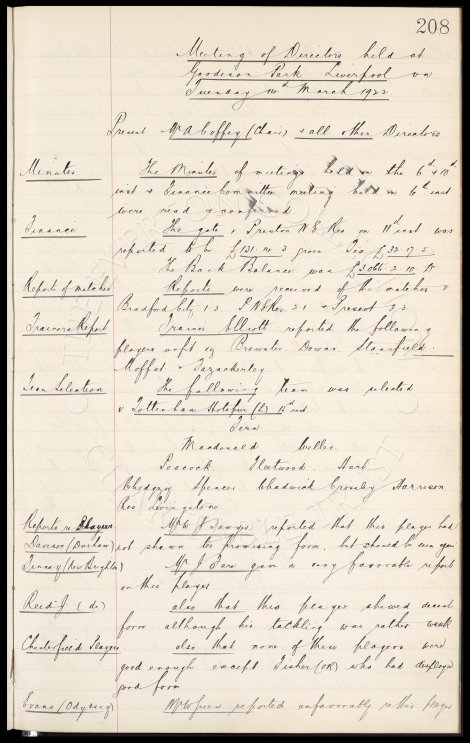 208
Meeting of Directors held at
Goodison Park Liverpool on
Tuesday 14th March 1922
Present Mr A Coffey (Chair) & all other Directors
Minutes The Minutes of meetings held on the 6th & 10th
inst & Finance Committee meeting held on 10th inst
were read & confirmed
Finance The gate v Preston N E Res on 11th inst was
reported to be £131. 14. 3 gross Tax £32. 17. 5
The Bank Balance was £3,066. 2. 10 Dr
Reports of matches Reports were received of the matches v
Bradford City 1.3 P N E Res 2.1 & Prescot 3.3
Trainers Report Trainer Elliott reported the following
players unfit viz Brewster Downs Stansfield
Moffat & Fazackerley
Team Selection The following team was selected
v Tottenham Hotspur (L) 15th inst
Fern
Macdonald
Peacock Fleetwood Hart
Chedgzoy Spencer Chadwick Crossley Harrison
Res Livingstone
Reports re Players Mr W Sawyer reported that this player had
Davison (Durham) not shown too promising form, but should be seen again
(New Brighton) Mr J gave a very favorable report
on this player
Reed J (do) also that this player showed decent
form although his tackling was rather weak
Chesterfield Players also that none of these players were
good enough except Fisher (OR) who had displayed
good form
Evans (Odyssey) Mr Green reported unfavorably re this player